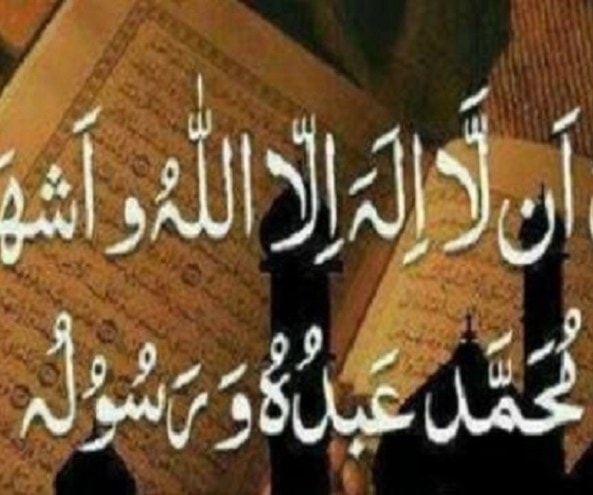 اَن لَّا اِلٰهَ اِلَّا اللّٰهُ و اَشهَ
مُحَمَّد عَبدُهُ وَ رَسُولُہ